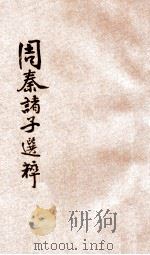 周秦諸子選粹
研狗
mtoou.info